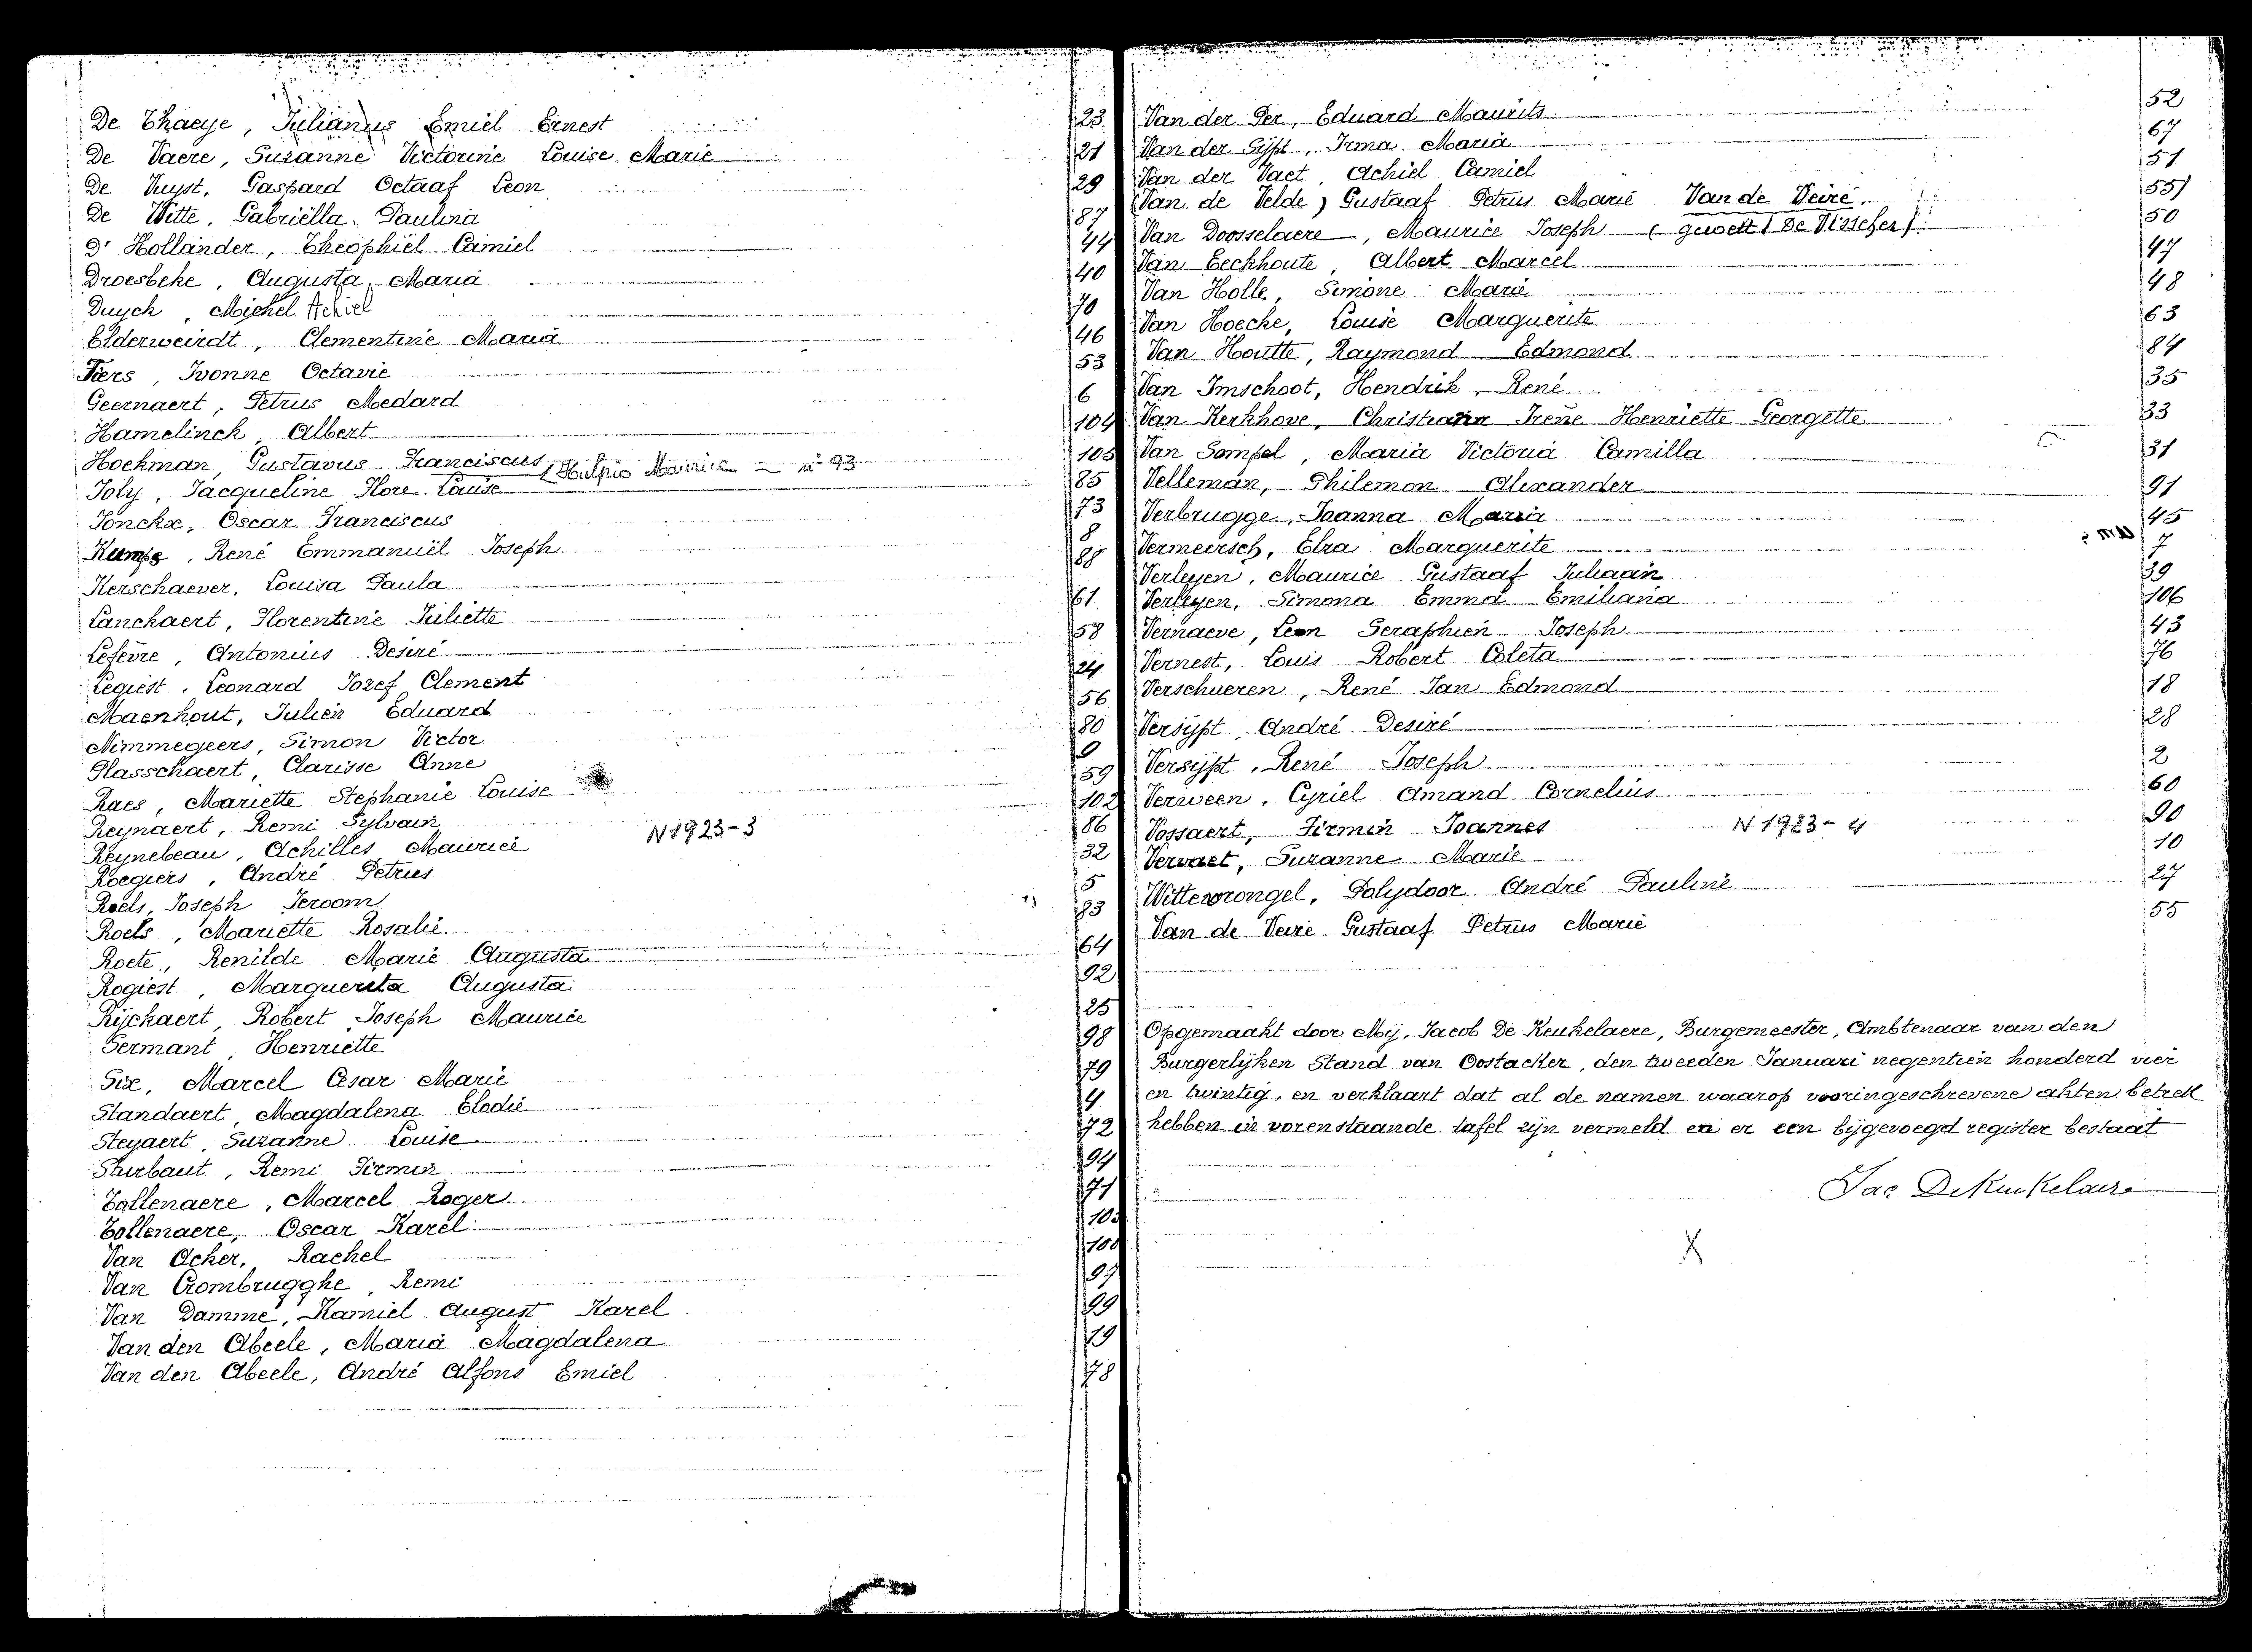 De Thaeye, Julianus Emiel Ernest 23
De Vaere, Suzanne Victorine Louise Marie 21
De Vuyst, Gaspard Octaaf Leon 29
De Witte, Gabriëlla Paulina 87
D'Hollander, Theophiel Camiel 44
Droesbeke, Augusta Maria 40
Duych, Michel Achiel 70
Elderweirdt, Clementine Maria 46
Fiers, Ivonne Octavie 53
Geernaert, Petrus Medard 6
Hamelinck, Albert 104
Hoekman, Gustavus Franciscus 105
(Hulpio Maurice - n° 93
Joly, Jacqueline Flore Louise 85
Jonckx, Oscar Franciscus 73
Kumps, René Emmanuël Joseph 8
Kerschaever, Louisa Paula 88
Lanchaert, Florentine Juliette 61
Lefèvre, Antonius Desiré 58
Legiest, Leonard Jozef Clement 24
Maenhout, Julien Eduard 56
Nimmegeers, Simon Victor 80
Plasschaert, Clarisse Anne 9
Raes, Mariette Stephanie Louise 59
Reynaert, Remi Sylvain 102
Reynebeau, Achilles Maurice N 1923-3 86
Roegiers, André Petrus 32
Roels, Joseph Jeroom 5
Roels, Mariette Rosalie 83
Roete, Renilde Marie Augusta 64
Rogiest, Marguerita Augusta 92
Rijckaert, Robert Joseph Maurice 25
Sermant, Henriette 98
Six, Marcel Cesar Marie 79
Standaert, Magdalena Elodie 4
Steyaert, Suzanne Louise 72
Sturbaut, Remi Firmin 94
Tollenaere, Marcel Roger 71
Tollenaere, Oscar Karel
Van Acker, Rachel
Van Crombrugghe, Remi 97
Van Damme, Kamiel August Karel 99
Van den Abeele, Maria Magdalena 19
Van den Abeele, André Alfons Emiel 78
Van der Per, Eduard Maurits 52
Van der Sijpt, Irma Maria 67
Van der Vaet, Achiel Camiel 51
(Van de Velde) Gustaaf Petrus Marie Van de Veire. 55)
Van Doosselaere, Maurice Joseph (gewett De Visscher) 50
Van Eeckhoute, Albert Marcel 47
Van Holle, Simone Marie 48
Van Hoecke, Louise Marguerite 63
Van Houtte, Raymond Edmond 84
Van Imschoot, Hendrik, René 35
Van Kerkhove, Christiann Irene Henriette Georgette 33
Van Sompel, Maria Victoria Camilla 31
Velleman, Philemon Alexander 91
Verbrugge, Joanna Maria 45
Vermeersch, Elza Marguerite 7
Verleyen, Maurice Gustaaf Juliaan 39
Verleyen, Simona Emma Emiliana 106
Vernaeve, Leon Seraphien Joseph 43
Vernest, Louis Robert Coleta 76
Verschueren, René Jan Edmond 18
Versijpt, André Desiré 28
Versijpt, René Joseph 2
Verween, Cyriel Amand Cornelius 60
Vossaert, Firmin Joannes N 1923-4 90
Vervaet, Suzanne Marie 10
Wittewrongel, Polydoor André Pauline 27
Van de Veire Gustaaf Petrus Marie 55
Opgemaakt door Mij, Jacob De Keukelaere, Burgemeester, Ambtenaar van den
Burgerlijken Stand van Oostacker, den tweeden Januari negentien honderd vier
en twintig, en verklaart dat al de namen waarop vooringeschrevene akten betrek
hebben in vorenstaande tafel zijn vermeld en er een bijgevoegd register bestaat
Jac DeKeukelaere